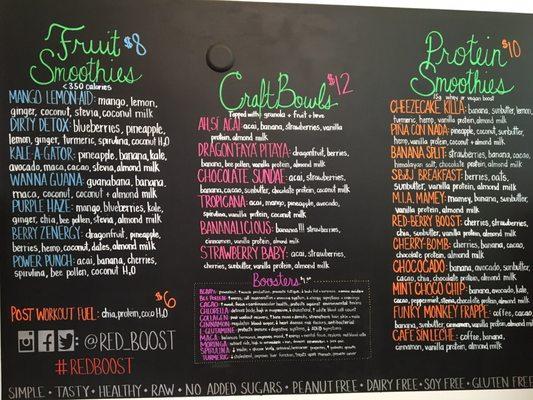 Fruit Smoothies $8
<350 calories
MANGO LEMON-AID: mango, lemon,
ginger, coconut, stevia, coconut milk
DIRTY DETOX: blueberries, pineapple,
lemon, ginger, turmeric, spirulina, coconut H2O
KALE-A-GATOR: pineapple, banana, kale,
avocado, maca, cacao, stevia, almond milk
WANNA GUANA: guanabana, banana,
maca, coconut, coconut + almond milk
PURPLE HAZE: mango, blueberries, kale,
ginger, chia, bee pollen, stevia, almond milk
BERRY ZENERGY: dragonfruit, pineapple,
berries, hemp, coconut, dates, almond milk
POWER PUNCH: acai, banana, cherries,
spirulina, bee pollen, coconut H2O
$6
POST WORKOUT FUEL: chia, protein, coco H2O
@RED_BOOST
#REDBOOST
Craft Bowls $12
Topped with granola + fruit + love
AH, SÍ ACAI: acai, banana, strawberries, vanilla
protein, almond milk
DRAGONFAYA PITAYA: dragonfruit, berries,
banana, bee pollen, vanilla protein, almond milk
CHOCOLATE SUNDAE: acai, strawberries,
banana, cacao, sunbutter, chocolate protein, coconut milk
TROPICANA: acai, mango, pineapple, avocado,
spirulina, vanilla protein, coconut milk
BANNNALICIOUS: banana!!! strawberries,
cinnamon, vanilla protein, almond milk
STRAWBERRY BABY: acai, strawberries,
cherries, sunbutter, vanilla protein, almond milk
Boosters
BEE POLLEN:
CACAO:
CHLORELLA:
COLLAGEN:
CINNAMON:
L-GLUTAMINE:
MACA:
MORINGA:
SPIRULINA:
TURMERIC:
Protein Smoothies $10
15g whey or vegan boost
CHEEZECAKE KILLA: banana, sunbutter, lemon,
turmeric, hemp, vanilla protein, almond milk
PIÑA CON NADA: pineapple, coconut, sunbutter,
hemp, vanilla protein, coconut + almond milk
BANANA SPLIT: strawberries, banana, cacao,
himalayan salt, chocolate protein, almond milk
SB&J BREAKFAST: berries, oats,
sunbutter, vanilla protein, almond milk
M.I.A. MAMEY: mamey, banana, sunbutter,
vanilla protein, almond milk
RED-BERRY BOOST: cherries, strawberries,
chia, sunbutter, vanilla protein, almond milk
CHERRY-BOMB: cherries, banana, cacao,
chocolate protein, almond milk
CHOCOCADO: banana, avocado, sunbutter,
cacao, chia, chocolate protein, almond milk
MINT CHOCO CHIP: banana, avocado, kale,
cacao, peppermint, stevia, chocolate protein, almond milk
FUNKY MONKEY FRAPPE: coffee, cacao,
banana, sunbutter, cinnamon, vanilla protein, almond milk
CAFE SIN LECHE: coffee, banana,
cinnamon, vanilla protein, almond milk
SIMPLE • TASTY • HEALTHY • RAW • NO ADDED SUGARS • PEANUT FREE • DAIRY FREE • SOY FREE • GLUTEN FREE